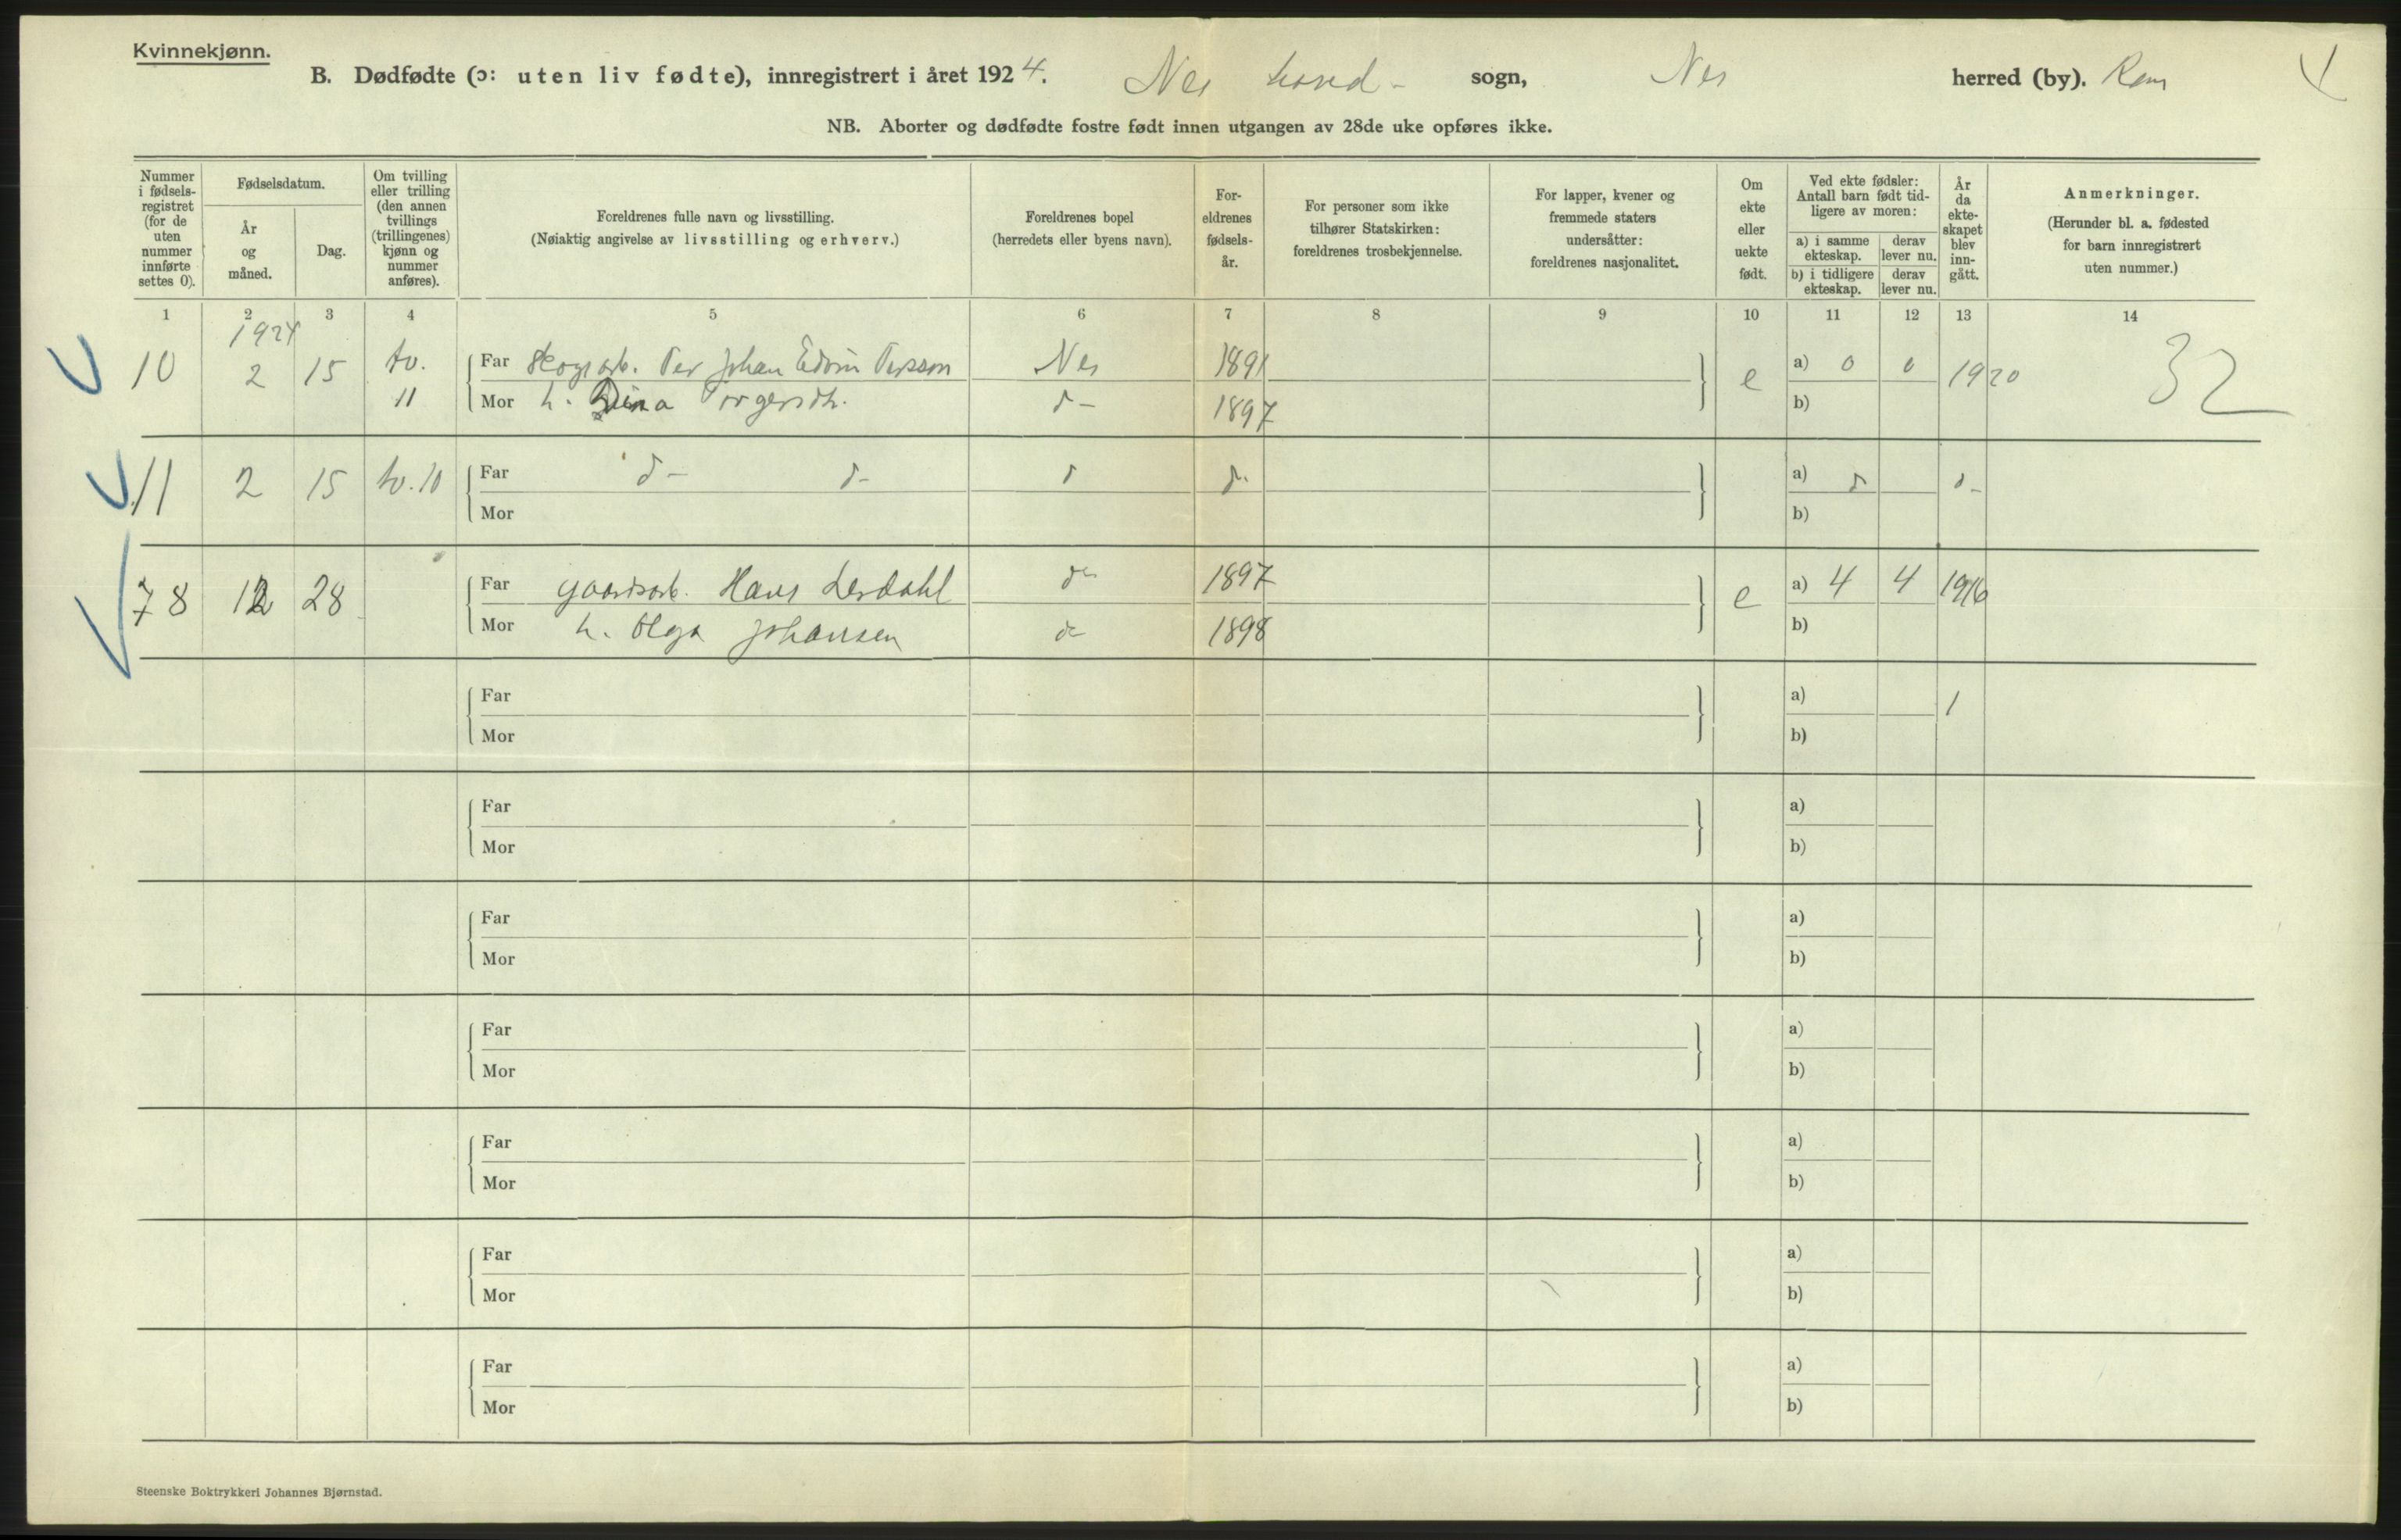 Kvinnekjønn.
B. Dødfødte (ɔ: uten liv fødte), innregistrert i året 1924. Nes hoved- sogn, Nes herred (by). Rom
NB. Aborter og dødfødte fostre født innen utgangen av 28de uke opføres ikke.
Nummer i fødsels-registret (for de uten nummer innførte settes 0).
Fødselsdatum.
År og måned.
Dag.
Om tvilling eller trilling (den annen tvillings (trillingenes) kjønn og nummer anføres).
Foreldrenes fulle navn og livsstilling.
(Nøiaktig angivelse av livsstilling og erhverv.)
Foreldrenes bopel
(herredets eller byens navn).
For-eldrenes fødsels-år.
For personer som ikke tilhører Statskirken: foreldrenes trosbekjennelse.
For lapper, kvener og fremmede staters undersåtter: foreldrenes nasjonalitet.
Om ekte eller uekte født.
Ved ekte fødsler: Antall barn født tid-ligere av moren:
a) i samme ekteskap.
derav lever nu.
b) i tidligere ekteskap.
derav lever nu.
År da ekte-skapet blev inn-gått.
Anmerkninger.
(Herunder bl. a. fødested for barn innregistrert uten nummer.)
1 2 3 4 5 6 7 8 9 10 11 12 13 14
1924
10 2 15 tv. 11 Far Skogsarb. Per Johan Edvin Persson Nes 1891 e a) 0 0 1920 32
Mor h. Dina Torgersdtr. d- 1897 b)
11 2 15 tv. 10 Far d- d- d d. a) d d-
Mor b)
78 12 28 Far gaardsarb. Hans Lerdahl do 1897 e a) 4 4 1916
Mor h. Olga Johansen do 1898 b)
Far a) 1
Mor b)
Far a)
Mor b)
Far a)
Mor b)
Far a)
Mor b)
Far a)
Mor b)
Far a)
Mor b)
Far a)
Mor b)
Steenske Boktrykkeri Johannes Bjørnstad.